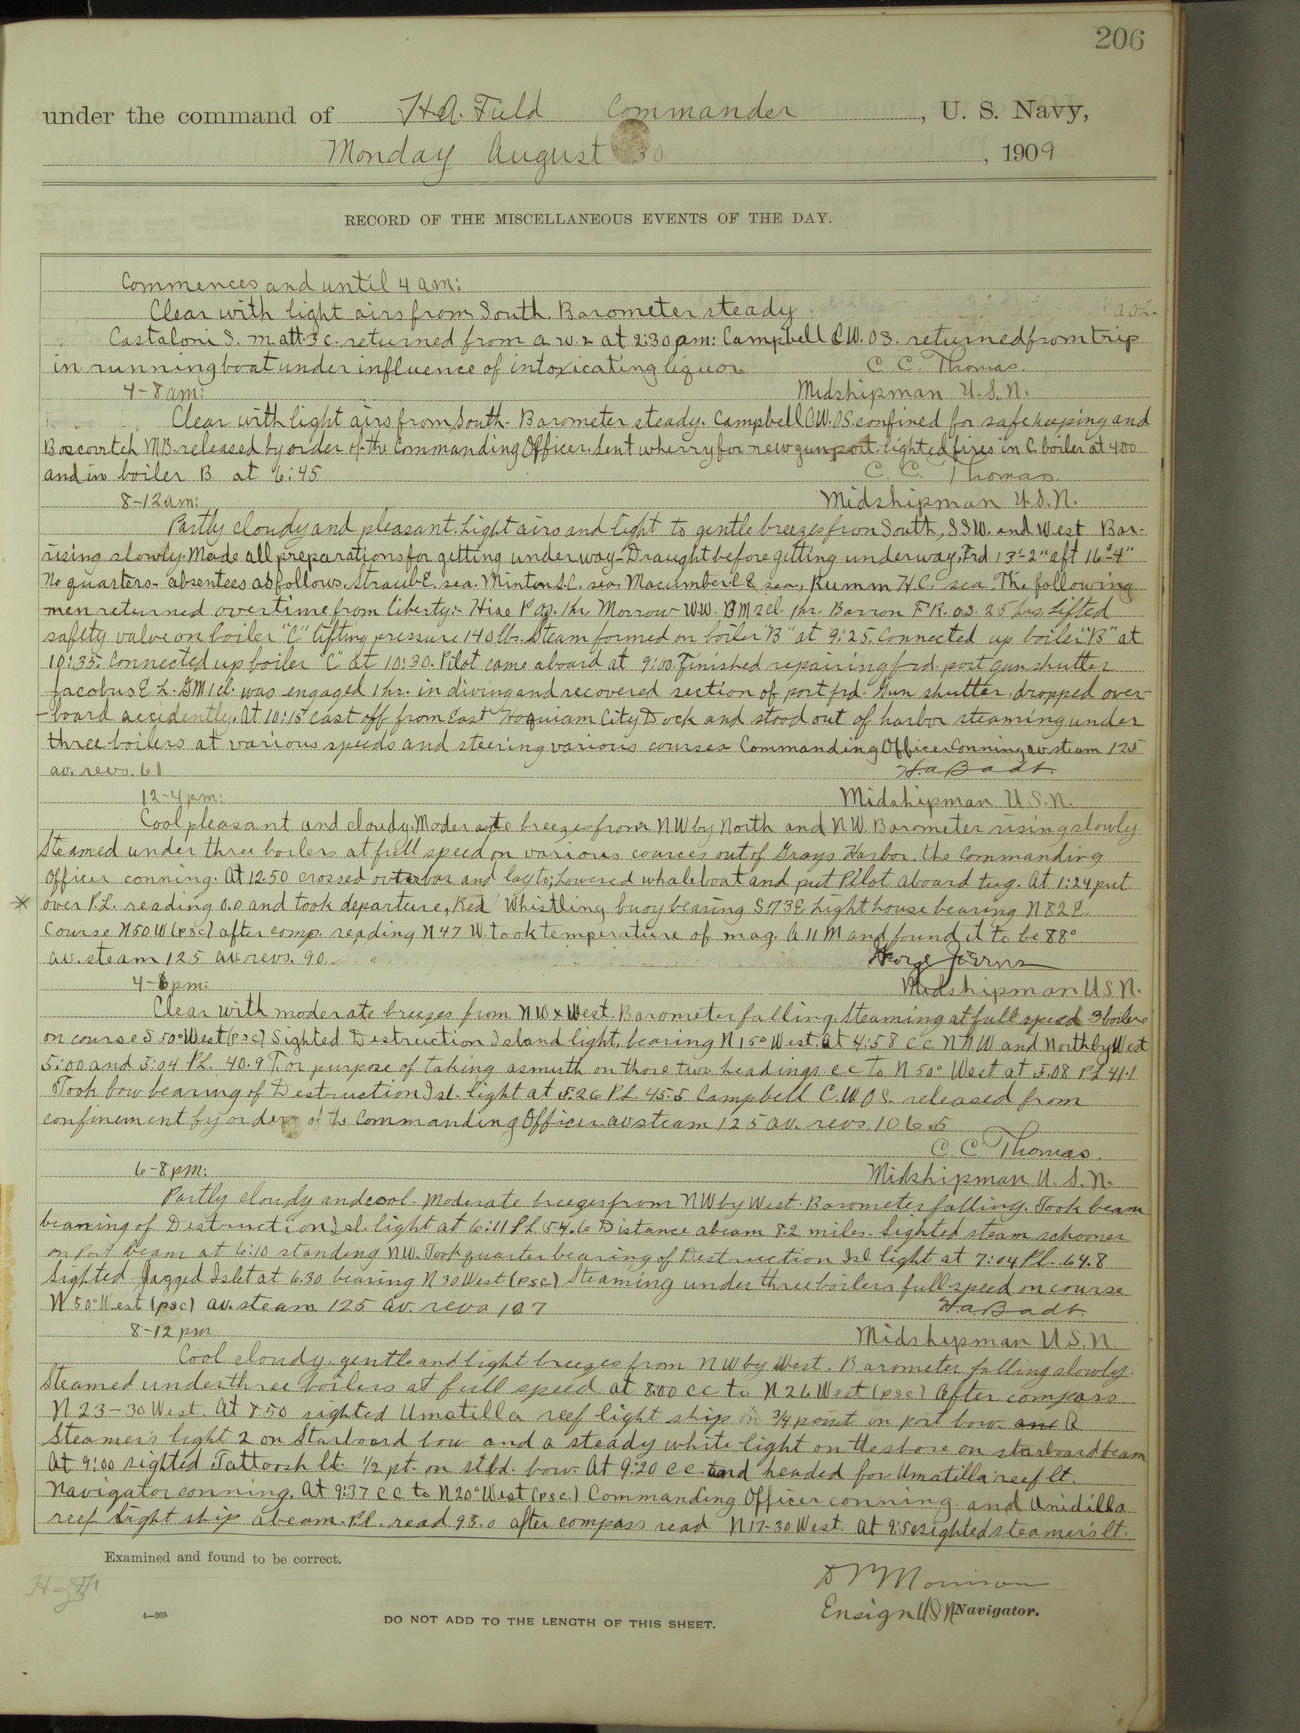 206
under the command of H.A. Field Commander, U. S. Navy,
Monday August 30, 1909
RECORD OF THE MISCELLANEOUS EVENTS OF THE DAY.
Commences and until 4 am:
Clear with light airs from South. Barometer steady
Castaloni S. matt 3c. returned from a w. L at 2:30 am: Campbell C.W. OS. returned from trip
in running boat under influence of intoxicating liquor C. C. Thomas.
4-8 am: Midshipman U.S.N.
Clear with light airs from South. Barometer steady. Campbell C.W. OS. confined for safe keeping and
M.B. released by order of the Commanding Officer. Sent wherry for new gun port. lighted fires in C. boiler at 4:00
and in boiler B at 6:45 C. C. Thomas
8-12 am: Midshipman U.S.N.
Partly cloudy and pleasant. Light airs and light to gentle breezes from South, SSW. and West Bar-
rising slowly. Made all preparations for getting under way. Draught before getting underway. Frd 13'-2" aft 16'-4"
No quarters- absentees as follows. Straub E. sea. Minton S.C. sea, Macumber E.E sea, Rumm H.C. sea. The following
men returned overtime from liberty:- Hise P. 1hr. Morrow W.W. B M 2cl. 1hr. Barron F R. O.S. 25 hrs. lifted
safety valve on boiler "C" lifting pressure 140 lbs. Steam formed on boiler "B" at 9:25. Connected up boiler "B" at
10:35. Connected up boiler "C" at 10:30. Pilot came aboard at 9:00. Finished repairing frd. port gun shutter
Jacobus E L. G M 1 cl. was engaged 1 hr. in diving and recovered section of port frd. Gun shutter, dropped over-
-board accidently. At 10:15 cast off from East Hoquiam City Dock and stood out of harbor steaming under
three boilers at various speeds and steering various courses Commanding Officer Conning av. steam 125
av. revs. 61 H.A. Badt.
12-4 pm: Midshipman U.S.N.
Cool pleasant and cloudy. Moderate breezes from NW by North and NW. Barometer rising slowly
Steamed under three boilers at full speed on various cources out of Grays Harbor. the Commanding
Officer conning. At 12:50 crossed outer bar and lay to; Lowered whaleboat and put Pilot aboard tug. At 1:24 put
* over P.L. reading 0.0 and took departure, Red Whistling buoy bearing S 73 E Light house bearing N 82 E.
Course N 50 W (psc) after comp. reading N 47 W. took temperature of mag. A 11 M and found it to be 88°
av. steam 125 av. revs. 90.
4-6 pm: Midshipman U S N.
Clear with moderate breezes from NW x West. Barometer falling. Steaming at full speed 3 boilers
on course S 50° West (psc) Sighted Destruction Island light, bearing N 15° West. At 4:58 c c N N W and North by West
5:00 and 5:04 P.L. 40.9 For purpose of taking asmuth on those two headings. c c to N 50° West at 5.08 P L 41.1
Took bow bearing of Destruction Isl. light at 5:26 P.L. 45.5 Campbell C. W O S. released from
confinement by order of the Commanding Officer. av steam 125 av. revs. 106.5
C. C. Thomas.
6-8 pm: Midshipman U. S. N.
Partly cloudy and cool. Moderate breezes from NW by West. Barometer falling. Took beam
bearing of Destruction Isl. light at 6:11 P L 54.6 Distance abeam 8.2 miles. Sighted steam schooner
on Port beam at 6:10 standing NW. Took quarter bearing of Destruction Isl light at 7:04 PL. 64.8
Sighted Jagged Islet at 6:30 bearing N 30 West (psc) Steaming under three boilers full speed on course
N 50° West (psc) av. steam 125 av. revs 107 H.A. Badt.
8-12 pm Midshipman U.S.N
Cool cloudy. gentle and light breezes from NW by West. Barometer falling slowly.
Steamed under three boilers at full speed at 8:00 c c to N 26 West (psc) after compass
N 23-30 West. At 8:50 sighted Umatilla reef light ship 3/4 point on port bow. and A
Steamer's light 2 on Starboard bow and a steady white light on the shore on starboard beam
At 9:00 sighted Tattoosh lt. 1/2 pt. on stbd. bow. At 9:20 c c. and headed for Umatilla reef lt.
Navigator conning. At 9:37 c c to N 20° West (psc.) Commanding Officer conning and Unidilla
reef light ship abeam. P.L. read 98.0 after compass read N 17-30 West. At 9:50 sighted steamer's lt.
Examined and found to be correct.
Morrison
Ensign U S N Navigator.
4—265
DO NOT ADD TO THE LENGTH OF THIS SHEET.